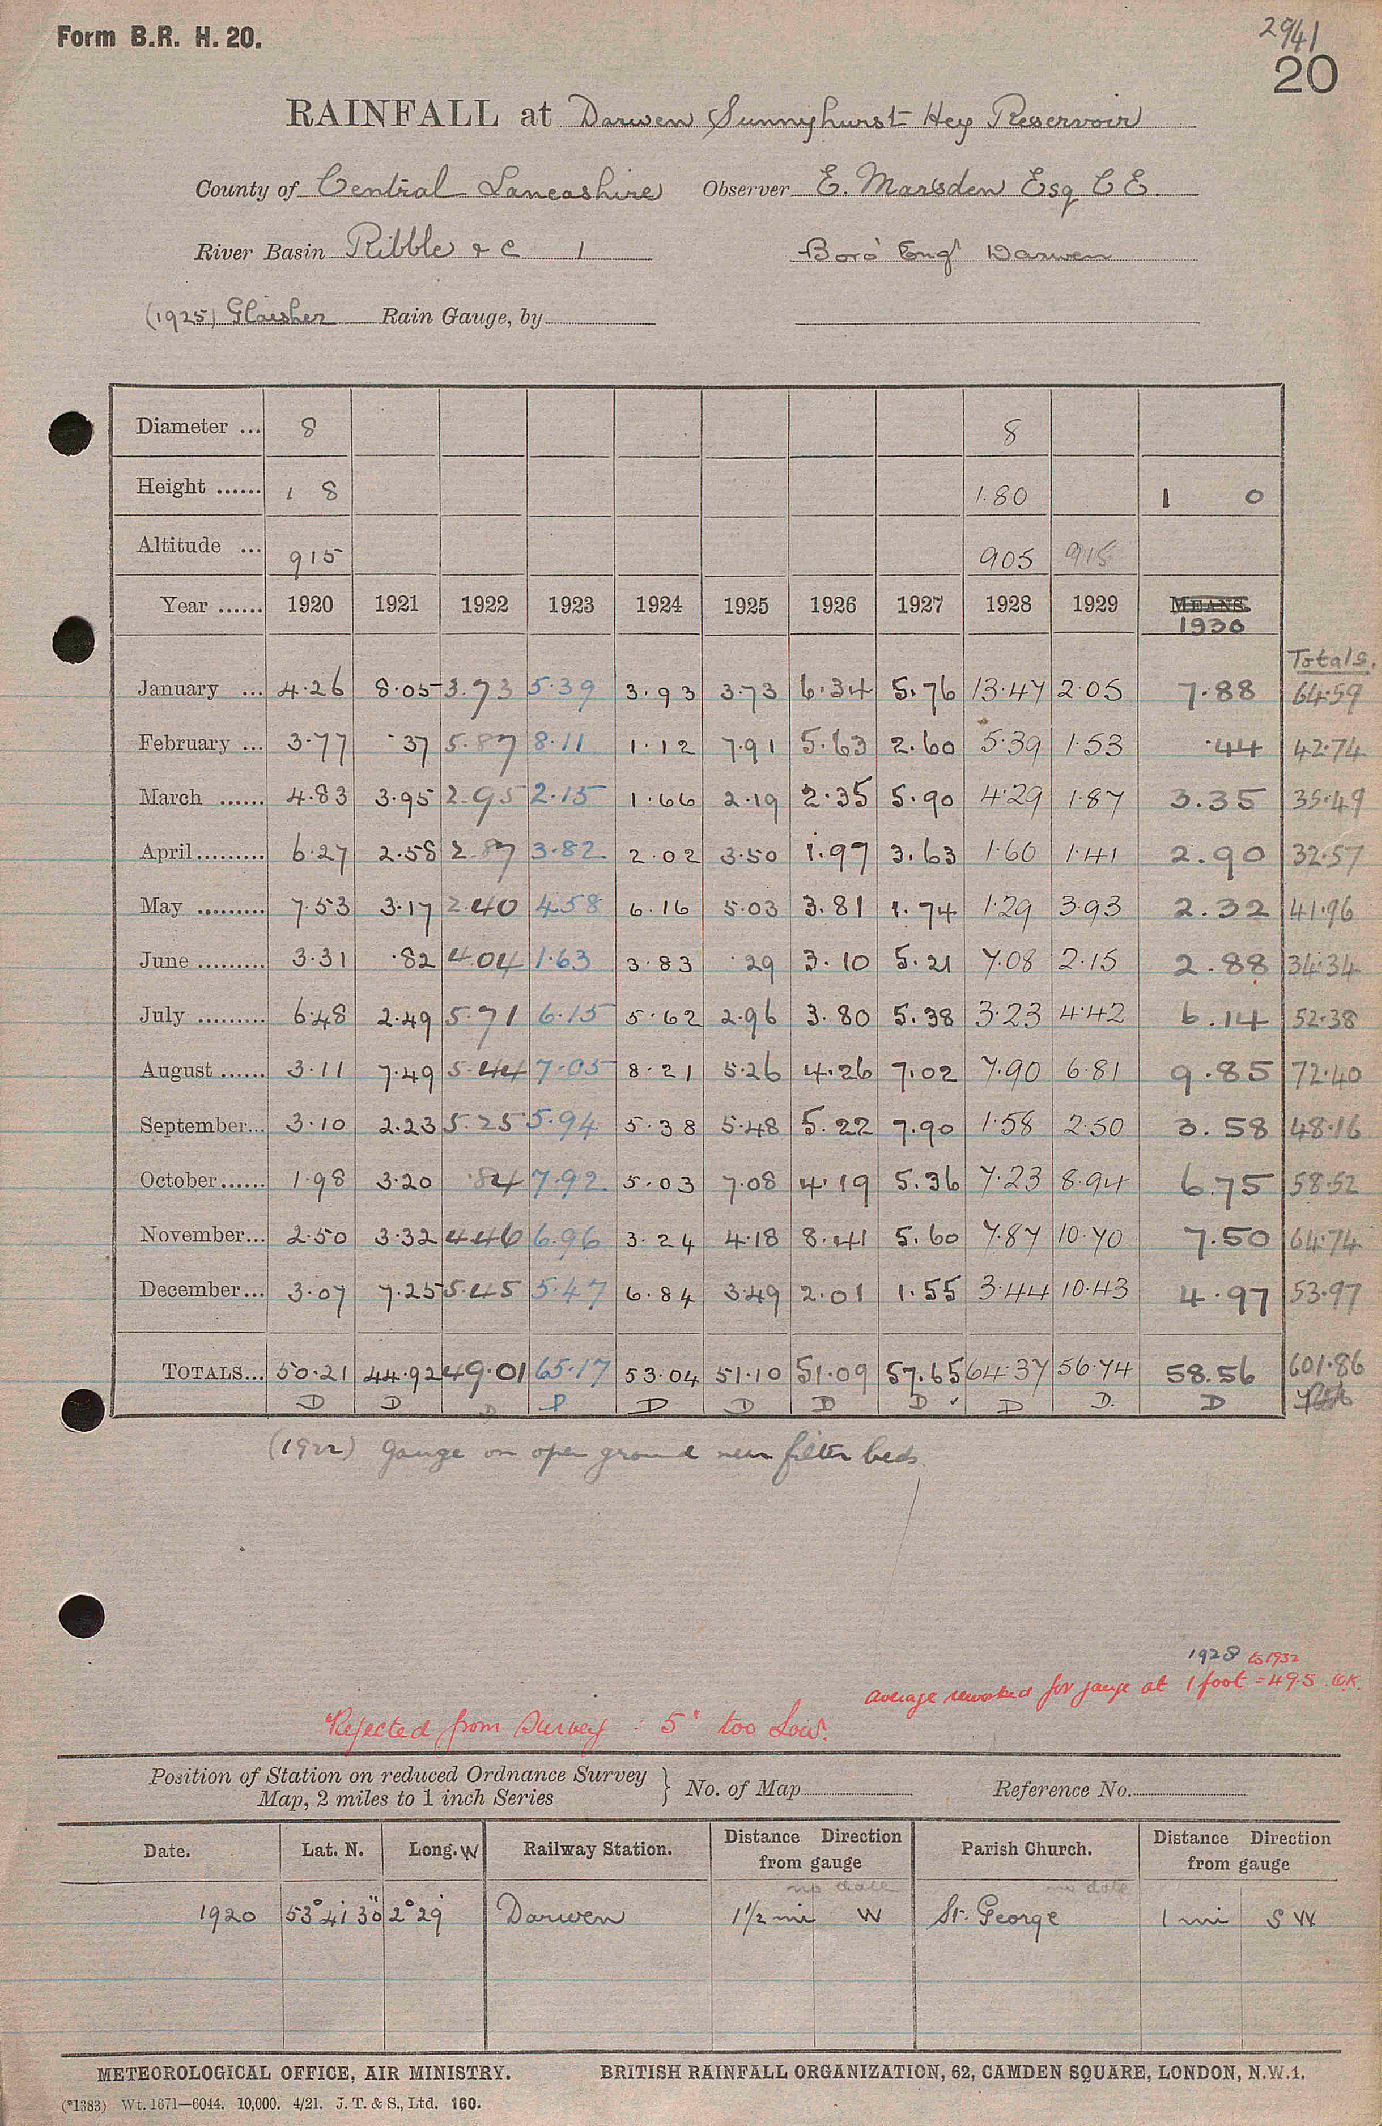 Form B.R. H. 20.
2941
20
RAINFALL at Darwen Sunnyhurst Hey Reservoir
County of Central Lancashire Observer E. Marsden Esq C E.
River Basin Ribble & C 1 Boro' Engr Darwen
(1925) Glaisher Rain Gauge, by
Diameter ... 8 8
Height ...... 1 8 1.80 1 0
Altitude ... 915 905 915
Year ...... 1920 1921 1922 1923 1924 1925 1926 1927 1928 1929 MEANS.
1930
Totals.
January ... 4.26 8.05 3.73 5.39 3.93 3.73 6.34 5.76 13.47 2.05 7.88 64.59
February ... 3.77 .37 5.87 8.11 1.12 7.91 5.63 2.60 5.39 1.53 .44 42.74
March ...... 4.83 3.95 2.95 2.15 1.66 2.19 2.35 5.90 4.29 1.87 3.35 35.49
April......... 6.27 2.58 2.87 3.82 2.02 3.50 1.97 3.63 1.60 1.41 2.90 32.57
May ......... 7.53 3.17 2.40 4.58 6.16 5.03 3.81 1.74 1.29 3.93 2.32 41.96
June ......... 3.31 .82 4.04 1.63 3.83 .29 3.10 5.21 7.08 2.15 2.88 34.34
July ......... 6.48 2.49 5.71 6.15 5.62 2.96 3.80 5.38 3.23 4.42 6.14 52.38
August ...... 3.11 7.49 5.44 7.05 8.21 5.26 4.26 7.02 7.90 6.81 9.85 72.40
September... 3.10 2.23 5.25 5.94 5.38 5.48 5.22 7.90 1.58 2.50 3.58 48.16
October...... 1.98 3.20 .84 7.92 5.03 7.08 4.19 5.36 7.23 8.94 6.75 58.52
November... 2.50 3.32 4.46 6.96 3.24 4.18 8.41 5.60 7.87 10.70 7.50 64.74
December... 3.07 7.25 5.45 5.47 6.84 3.49 2.01 1.55 3.44 10.43 4.97 53.97
TOTALS... 50.21 44.92 49.01 65.17 53.04 51.10 51.09 57.65 64.37 56.74 58.56 601.86
D D D P D D D D D D. D
(1922) Gauge on open ground near filter beds.
1928 to 1932
average reworked for gauge at 1 foot = 49.5
"Rejected from Survey : 5" too Low".
Position of Station on reduced Ordnance Survey
Map, 2 miles to 1 inch Series } No. of Map Reference No.
Date. Lat. N. Long. W Railway Station. Distance Direction from gauge Parish Church. Distance Direction from gauge
no date no date
1920 53° 41' 30" 2° 29' Darwen 1½ mi W St. George 1 mi S W
METEOROLOGICAL OFFICE, AIR MINISTRY. BRITISH RAINFALL ORGANIZATION, 62, CAMDEN SQUARE, LONDON, N.W.1.
(*1383) Wt. 1671—6044. 10,000. 4/21. J. T. & S., Ltd. 160.